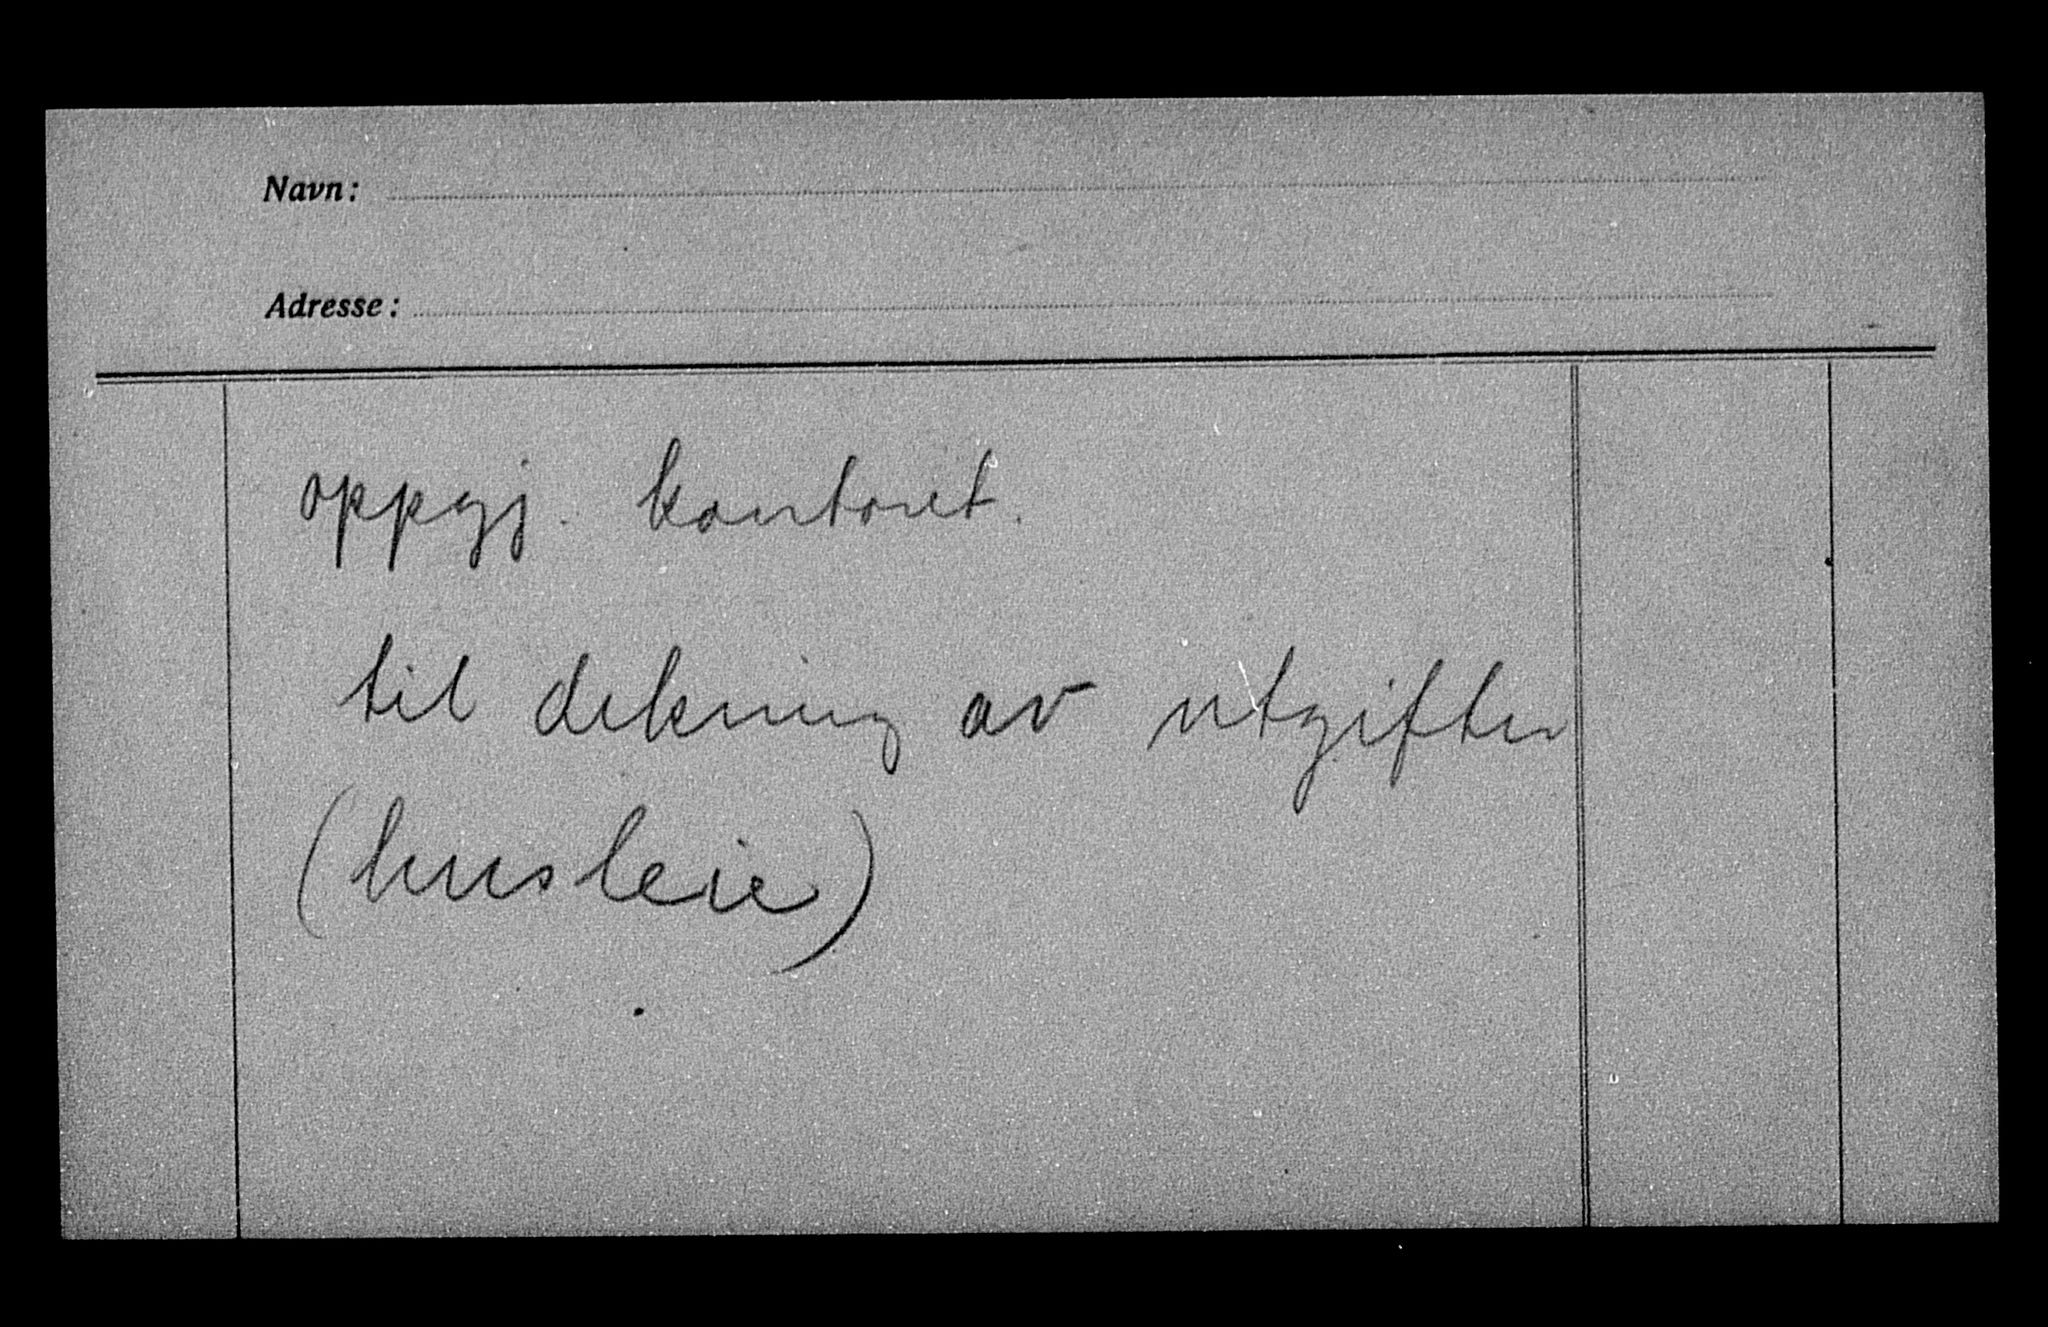 Navn:
Adresse:
oppgj. kontoret.
til dekning av utgifter
(husleie)